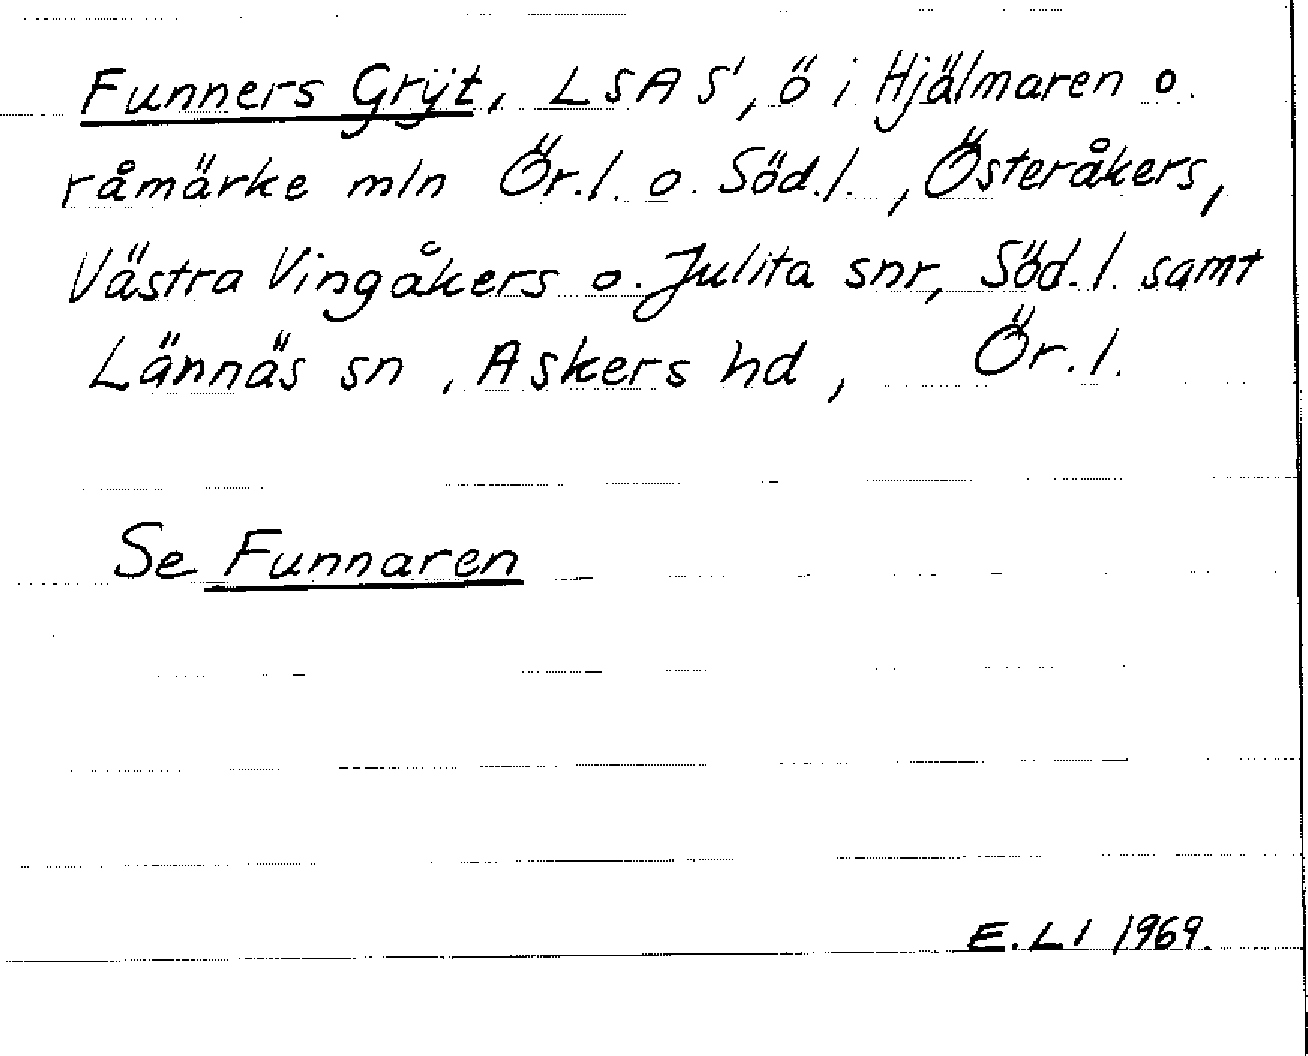 Funners Grÿt, LSA S', ö i Hjälmaren o.
råmärke mln Ör.l. o. Söd.l., Österåkers,
Västra Vingåkers o. Julita snr, Söd.l. samt
Lännäs sn, Askers hd, Ör.l.
Se Funnaren
E.Ll 1969.